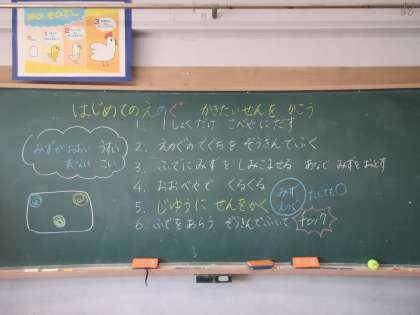 はじめてのえのぐ かきたいせんを かこう
みずがおおい うすい
すくない こい
1. 1しょくだけ こべやにだす
2. えのぐのでぐちを ぞうきんでふく
3. ふでにみずを しみこませる あなで みずをおとす
4. おおべやで くるくる
みず
えのぐ
たしても○
5. じゆうに せんをかく
6. ふでをあらう ぞうきんでふいて
チェック